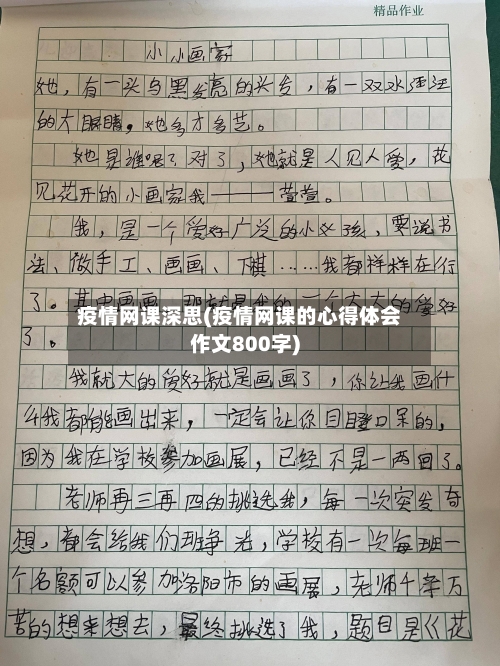 精品作业
小小画家
她，有一头乌黑发亮的头发，有一双水汪汪
的大眼睛，她多才多艺。
她是谁呢？对了，她就是人见人爱，花
见花开的小画家我——萱萱。
我，是一个爱好广泛的小女孩，要说书
法、做手工、画画、下棋……我都样样在行
了。其中画画，那就是我的一个大大的爱好
了。
疫情网课深思(疫情网课的心得体会
作文800字)
我就大的爱好就是画画了，你让我画什
么我都能画出来，一定会让你目瞪口呆的，
因为我在学校参加画展，已经不是一两回了。
老师再三再四的挑选我，每一次突发奇
想，都会给我们班争光，学校有一次每班一
个名额可以参加洛阳市的画展，老师千辛万
苦的想来想去，最终挑选了我，题目是《花